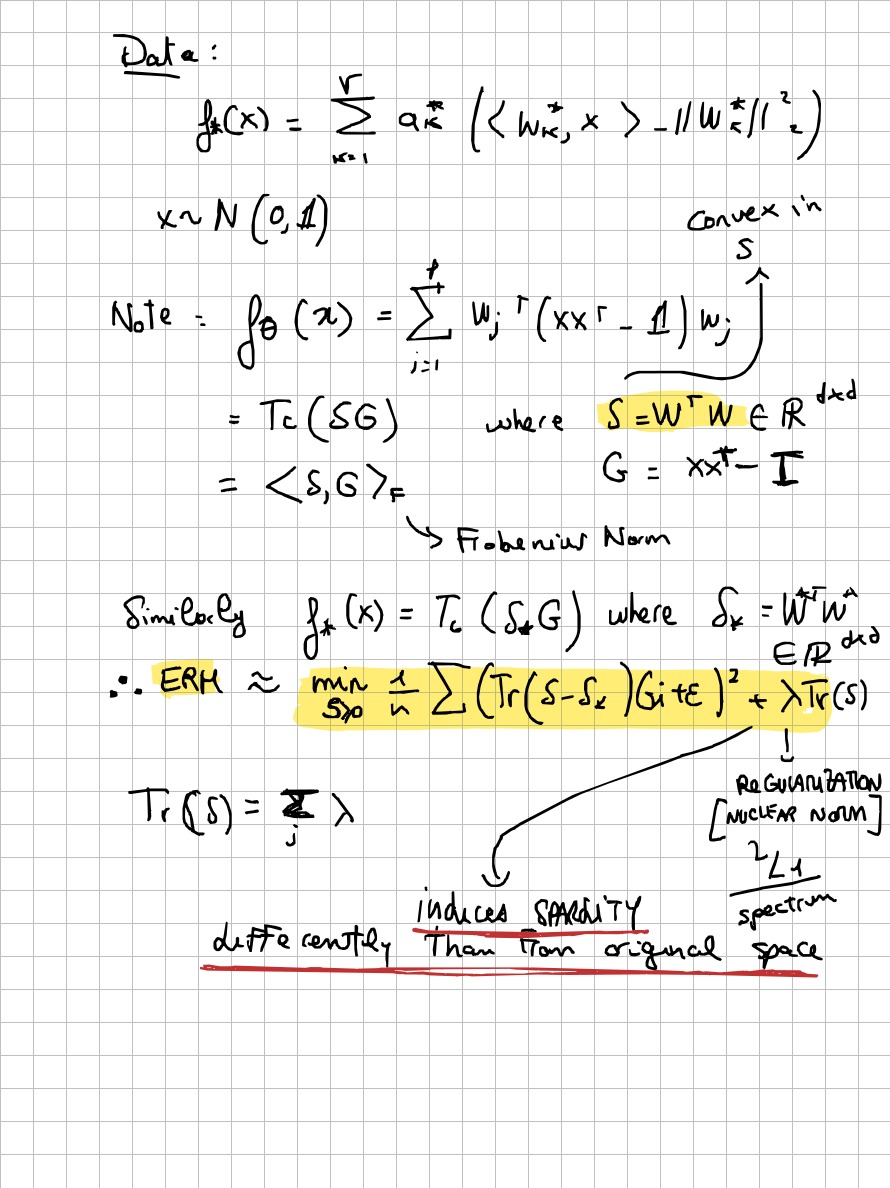 Data:
f*(x) = Σ_{k=1}^{r} a_k^* (<w_k^*, x> - ||w_k^*||_2^2)
x ~ N(0, 𝟙)
convex in
S
Note: f_θ(x) = Σ_{j=1}^{p} w_j^T (xx^T - 𝟙) w_j
= Tr(SG) where S = W^T W ∈ ℝ^{d×d}
= <S, G>_F G = xx^T - I
Frobenius Norm
Similarly f_*(x) = Tr(S_* G) where S_* = W^{*T} W^*
∈ ℝ^{d×d}
∴ ERM ≈ min_{S≽0} 1/n Σ (Tr(S - S_*)G_i + ε)^2 + λ Tr(S)
REGULARIZATION
[NUCLEAR NORM]
Tr(S) = Σ_j λ
L1
spectrum
induces SPARSITY
differently than from original space